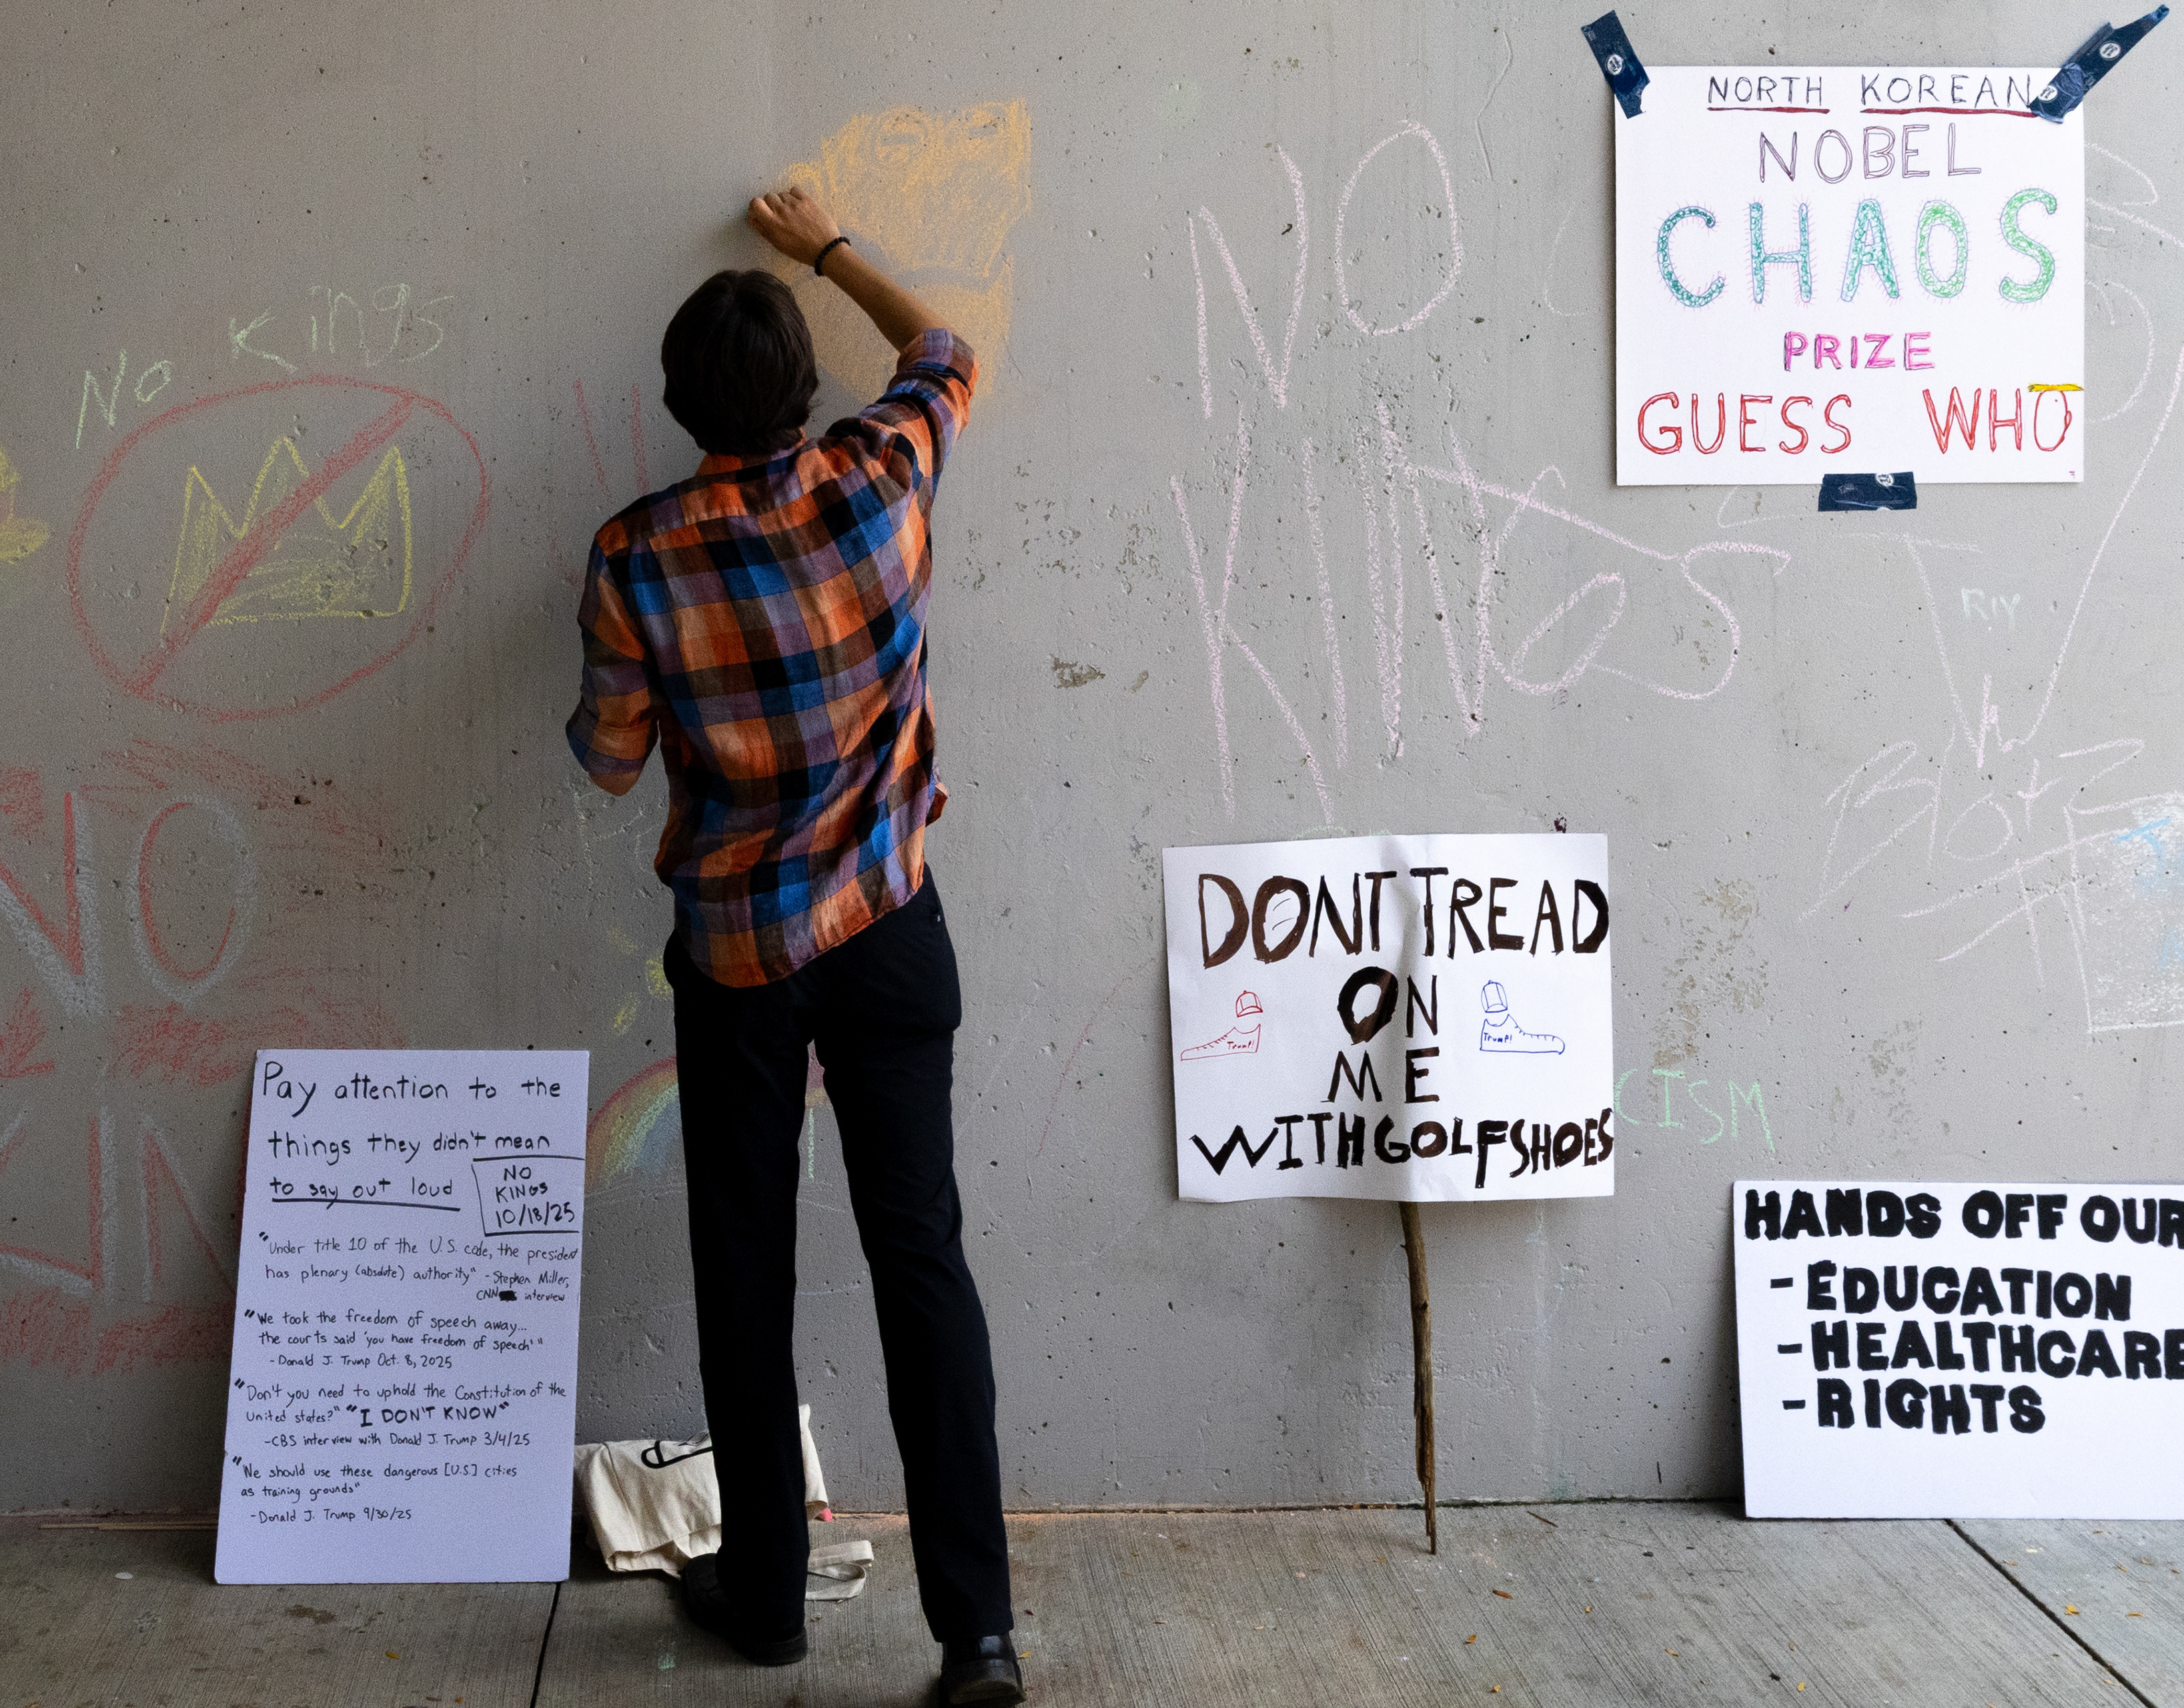 No Kings
NO
KIN
Pay attention to the
things they didn't mean
to say out loud
NO
KINGS
10/18/25
"Under title 10 of the U.S. code, the president
has plenary (absolute) authority" - Stephen Miller,
CNN interview
"We took the freedom of speech away...
the courts said 'you have freedom of speech'"
- Donald J. Trump Oct. 8, 2025
"Don't you need to uphold the Constitution of the
United states?" "I DON'T KNOW"
-CBS interview with Donald J. Trump 3/4/25
"We should use these dangerous [U.S.] cities
as training grounds"
-Donald J. Trump 9/30/25
NO
KINGS
NORTH KOREAN
NOBEL
CHAOS
PRIZE
GUESS WHO
DONT TREAD
ON
ME
WITH GOLF SHOES
Trump!
Trump!
CISM
HANDS OFF OUR
- EDUCATION
- HEALTHCARE
- RIGHTS